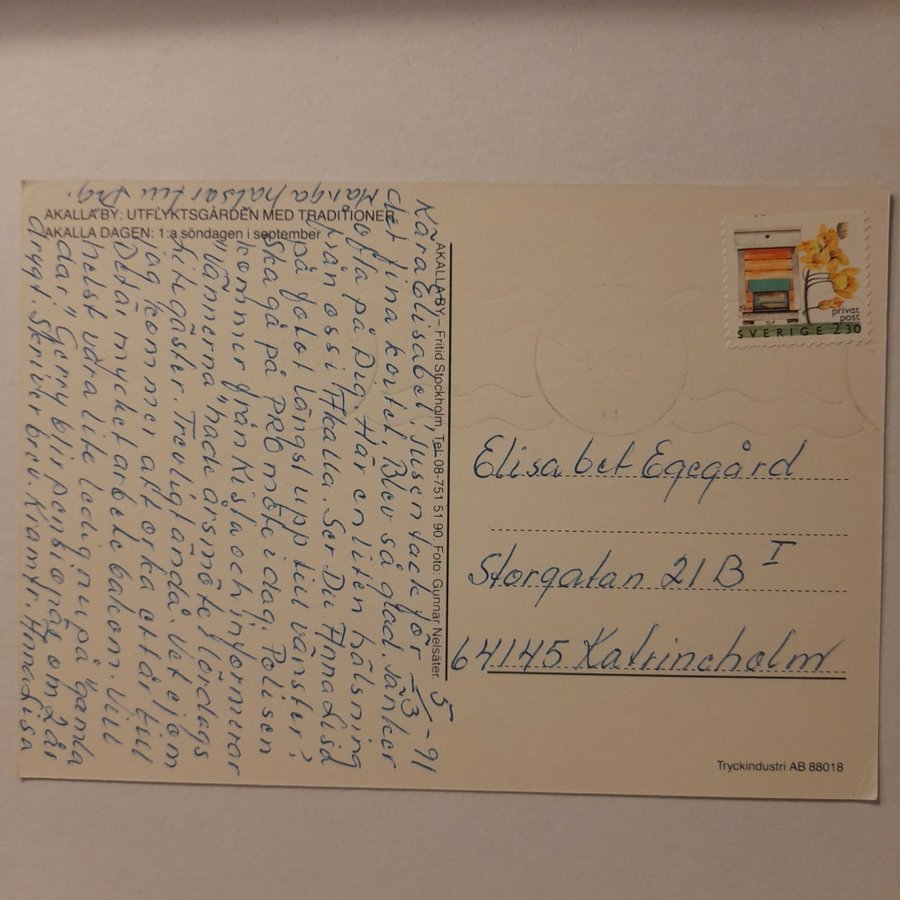 AKALLA BY: UTFLYKTSGÅRDEN MED TRADITIONER
AKALLA DAGEN: 1:a söndagen i september
AKALLA BY – Fritid Stockholm, Tel. 08-751 51 90. Foto: Gunnar Nelsäter.
5/3 -91
Kära Elisabet, Tusen tack för
det fina kortet. Blev så glad. Tänker
ofta på Dig. Här en liten hälsning
från oss i Akalla. Ser Du AnnaLisa
på fotot längst upp till vänster?
Ska gå på PRO möte i dag. Polisen
kommer från Kista och informerar
"Vännerna" hade årsmöte lördags
Lite gäster. Trevligt ändå. Vet ej om
jag kommer att orka ett år till
Det är mycket arbete bakom. Vill
helst vara lite ledig nu på "gamla
dar". Gerry blir pensionär om 2 år
drygt. Skriver brev. Kram fr. AnnaLisa
Många hälsn. till Dig.
SVERIGE 2.30
privat
post
Elisabet Egegård
Storgatan 21 B I
64145 Katrineholm
Tryckindustri AB 88018